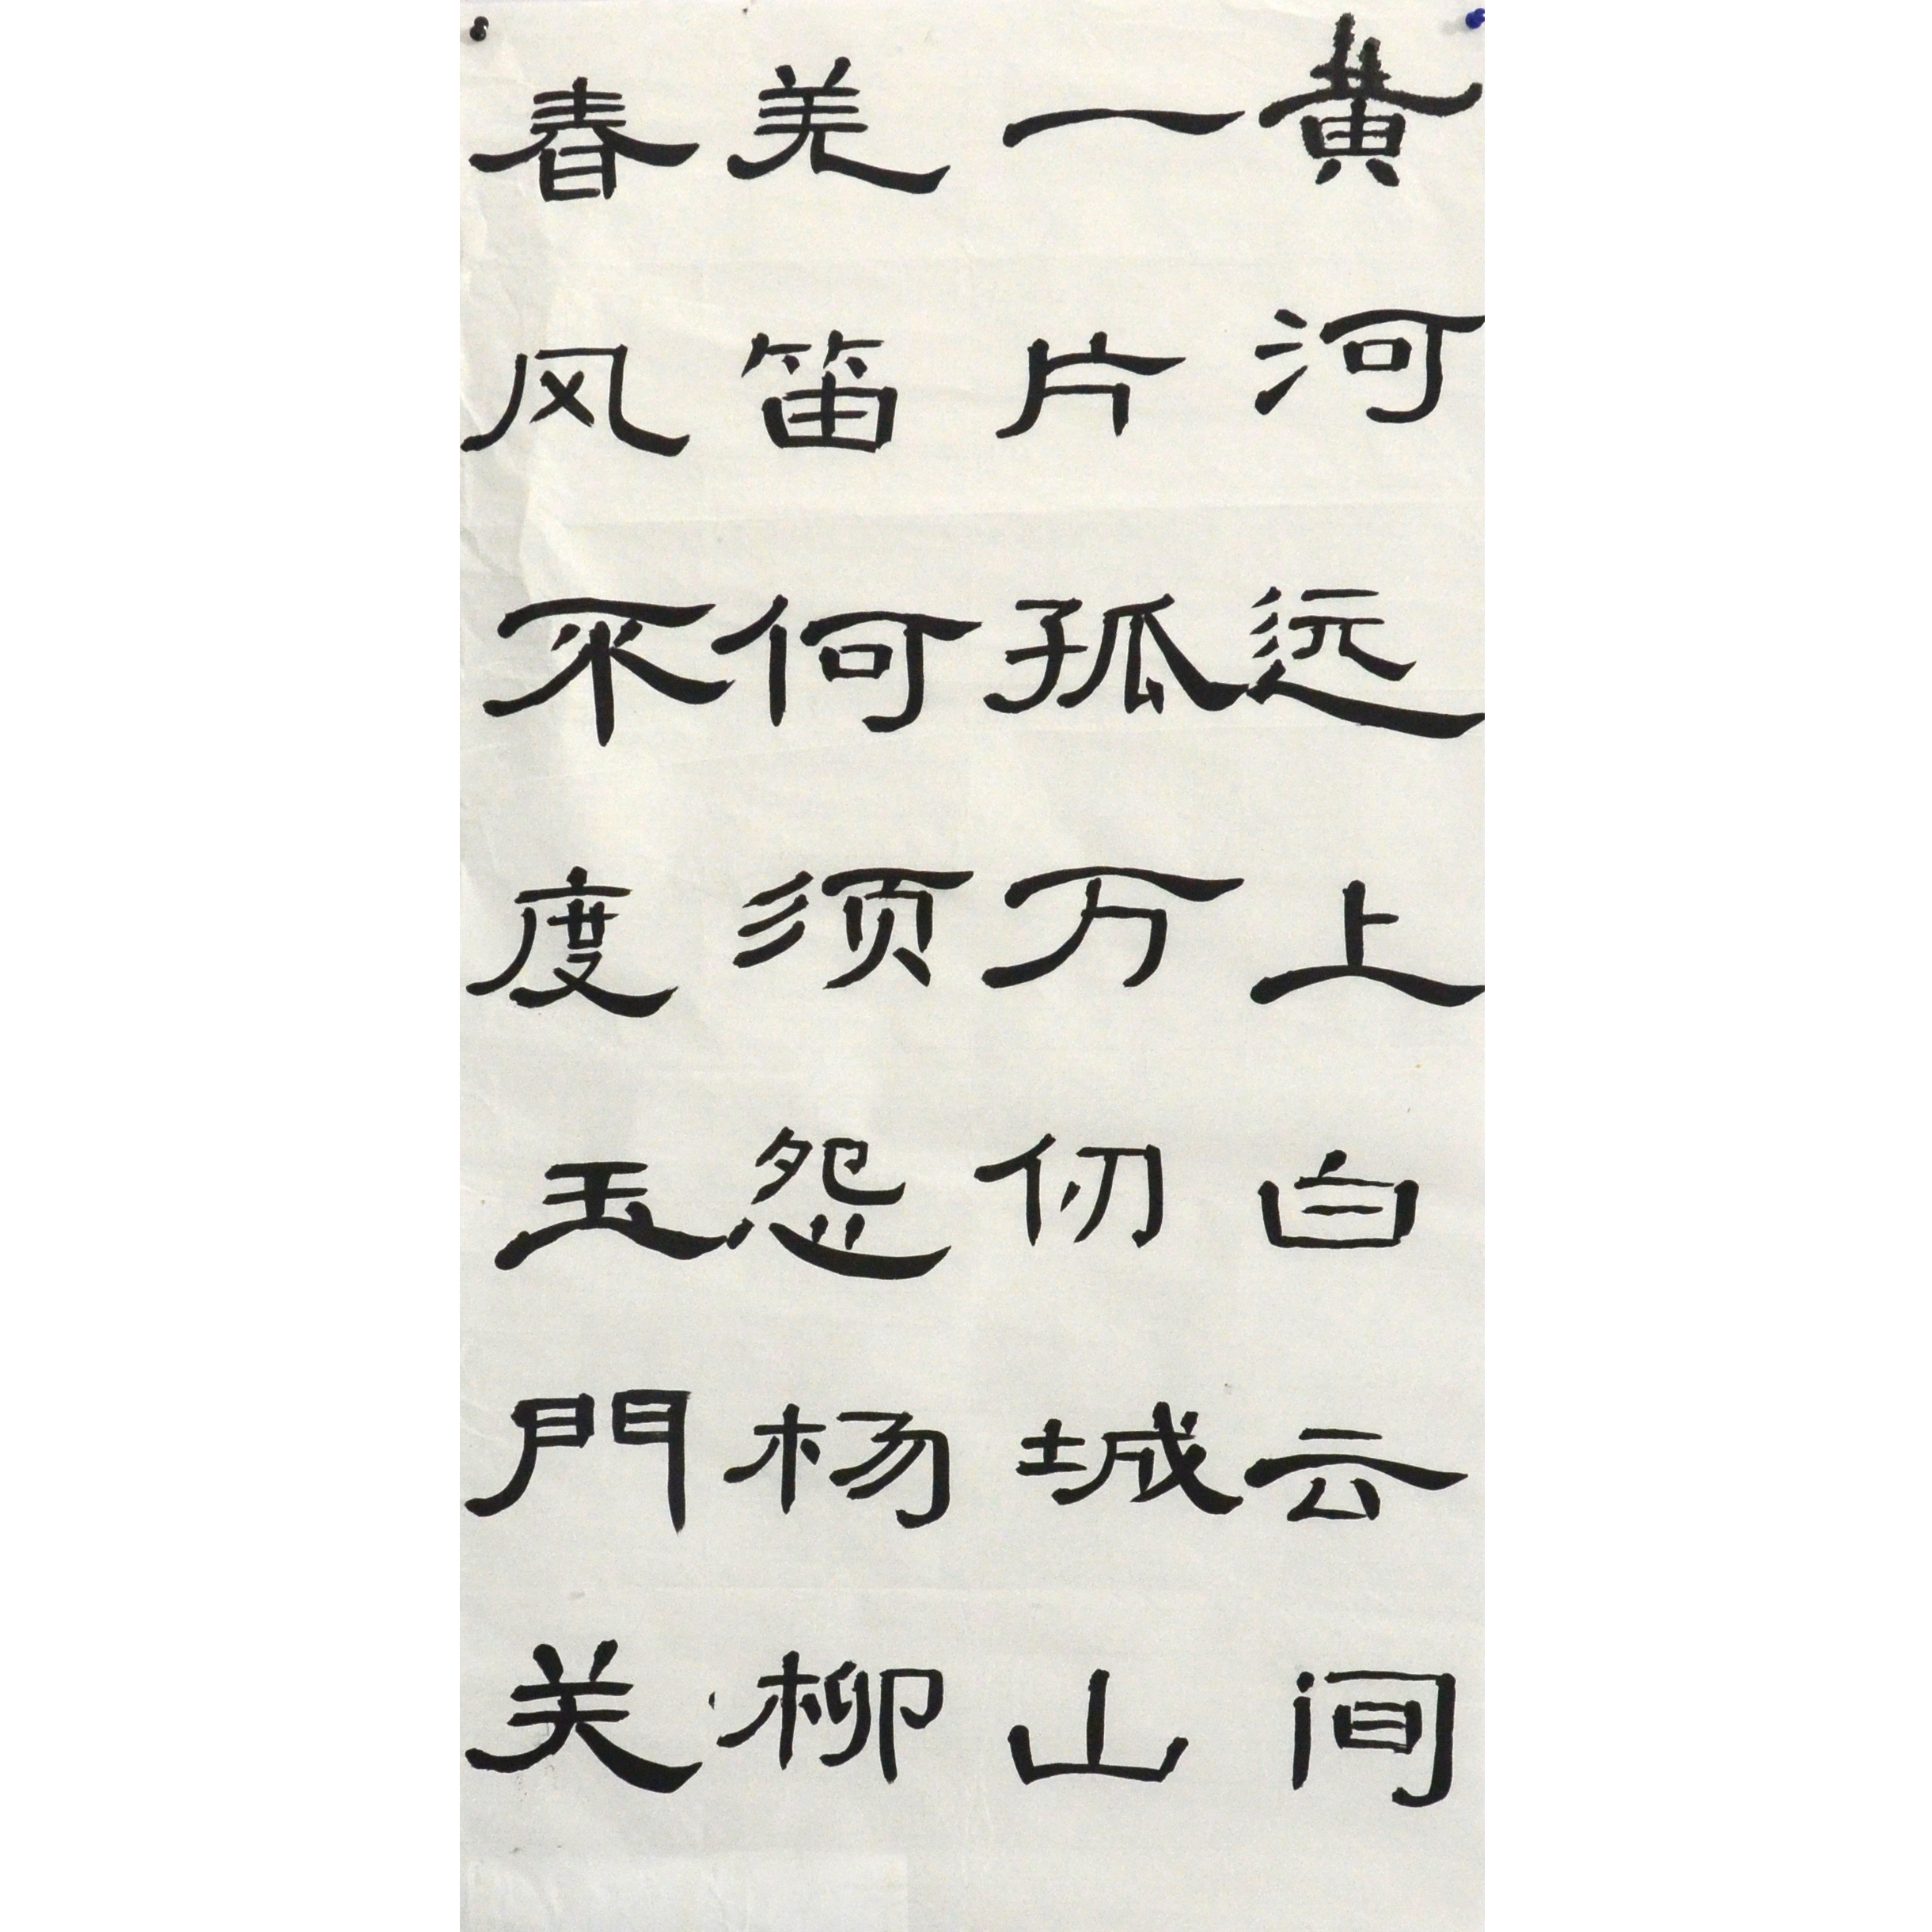 黄河远上白云间
一片孤万仞城山
羌笛何须怨杨柳
春风不度玉門关